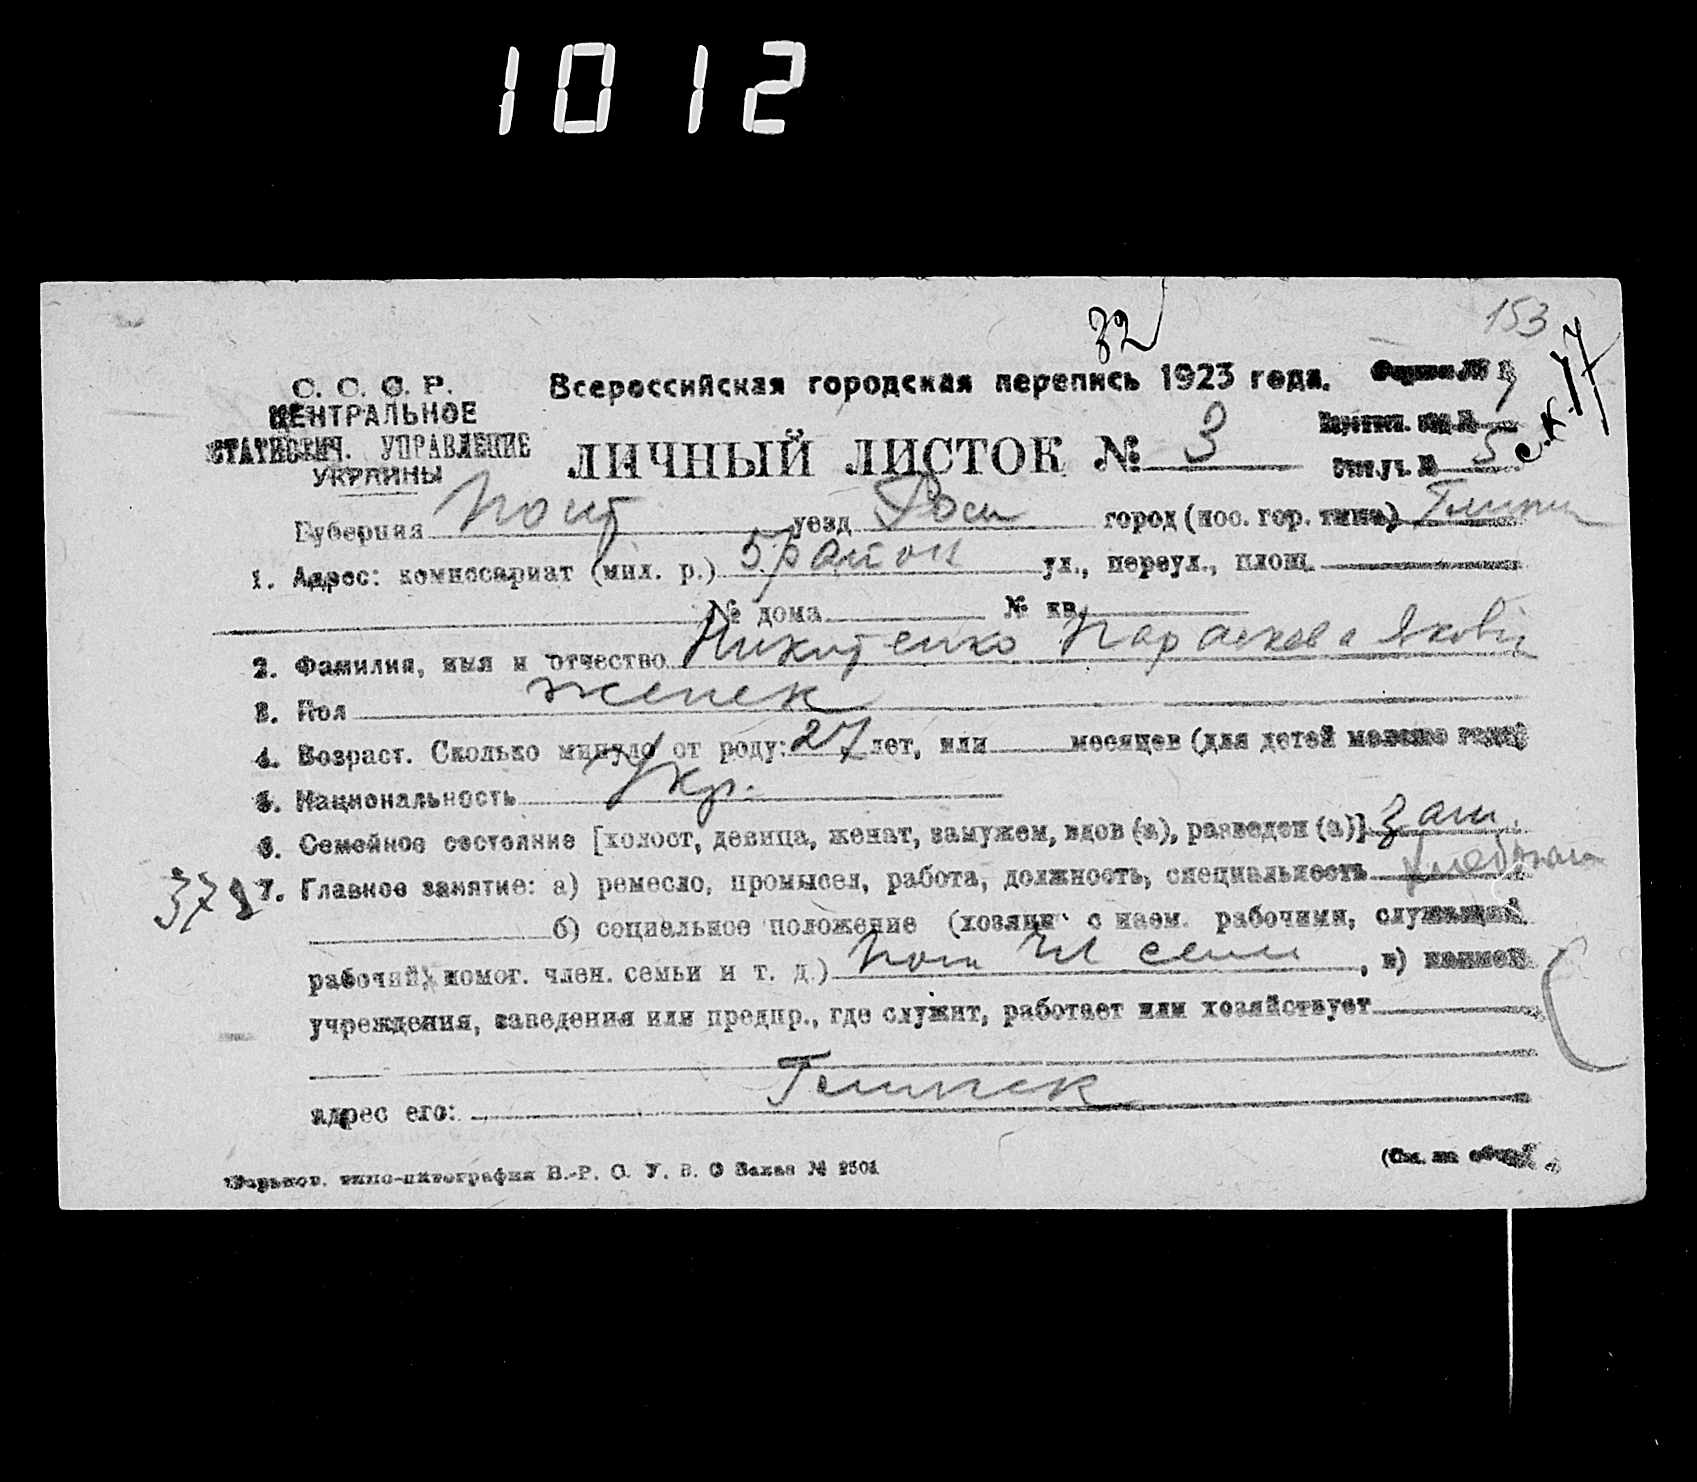 1012
153
32
С. С. С. Р.
ЦЕНТРАЛЬНОЕ
СТАТИСТИЧ. УПРАВЛЕНИЕ
УКРАИНЫ
Всероссийская городская перепись 1923 года.
ЛИЧНЫЙ ЛИСТОК № 3
с.к. 17
5
Губерния Полт уезд город (пос. гор. типа)
1. Адрес: комиссариат (мил. р.) 5 район ул., переул., площ.
№ дома № кв.
2. Фамилия, имя и отчество Никитенко Параскева Яковл
3. Пол женск
4. Возраст. Сколько минуло от роду: 27 лет, или месяцев (для детей моложе года)
5. Национальность Укр.
6. Семейное состояние [холост, девица, женат, замужем, вдов (а), разведен (а)] зам.
7. Главное занятие: а) ремесло, промысел, работа, должность, специальность
б) социальное положение (хозяин с наем. рабочими, служащий
рабочий, помог. член. семьи и т. д.) пом чл семи, в) наимен
учреждения, заведения или предпр., где служит, работает или хозяйствует
адрес его: Глинск
Харьков. типо-литография В.-Р. С. У. В. О Заказ № 2501
(См. на обор